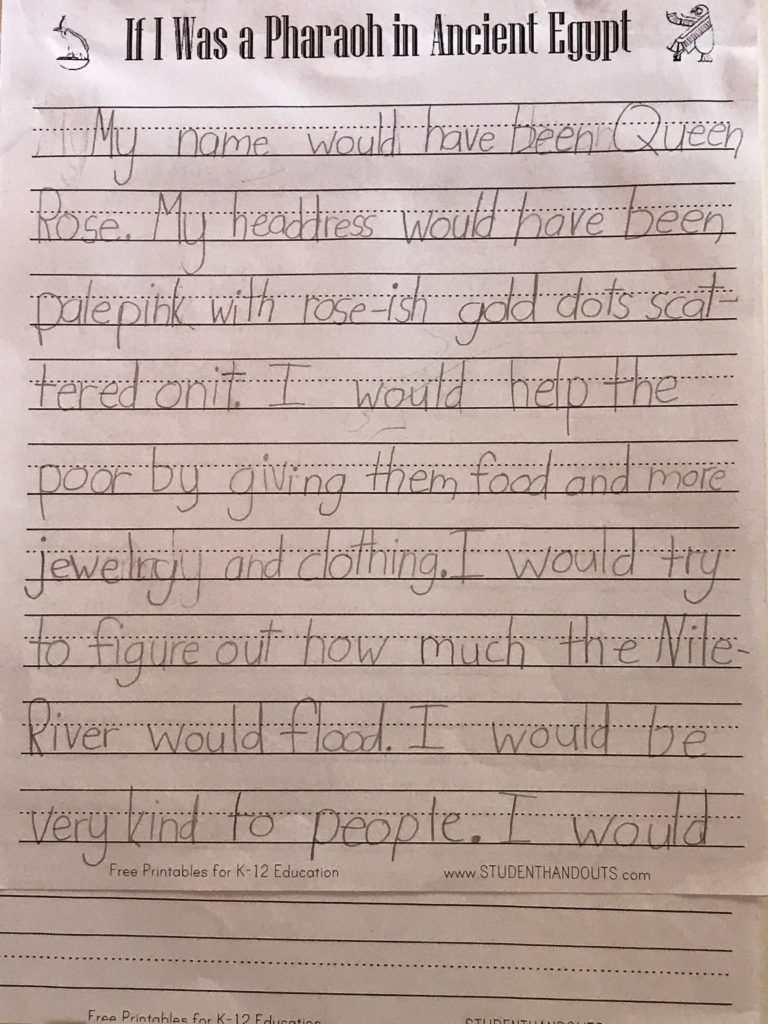 If I Was a Pharaoh in Ancient Egypt
My name would have been Queen
Rose. My headdress would have been
pale pink with rose-ish gold dots scat-
tered on it. I would help the
poor by giving them food and more
and clothing. I would try
to figure out how much the Nile-
River would flood. I would be
very kind to people. I would
Free Printables for K-12 Education www.STUDENTHANDOUTS.com
Free Printables for K-12 Education